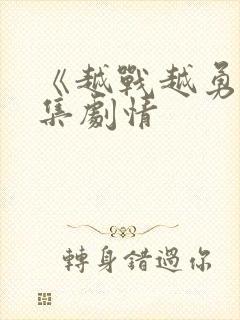 《越戰越勇
集劇情
轉身錯過你